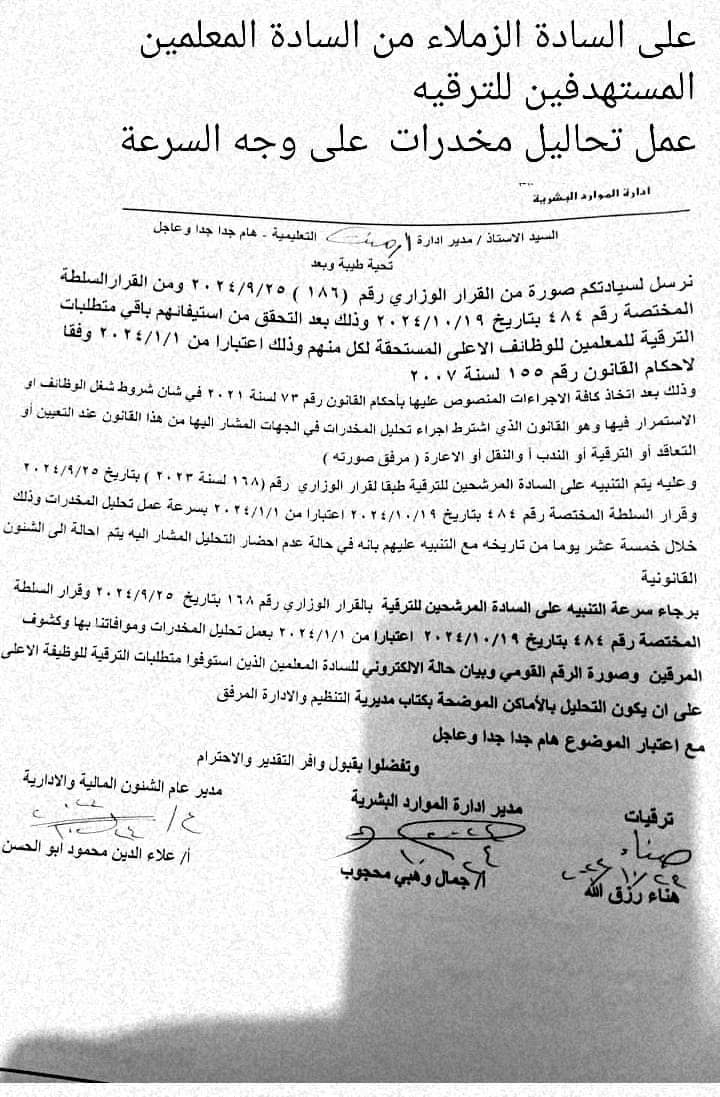 على السادة الزملاء من السادة المعلمين
المستهدفين للترقيه
عمل تحاليل مخدرات على وجه السرعة
ادارة الموارد البشرية
السيد الاستاذ / مدير ادارة التعليمية - هام جدا جدا وعاجل
تحية طيبة وبعد
نرسل لسيادتكم صورة من القرار الوزاري رقم (١٨٦) ٢٠٢٤/٩/٢٥ ومن القرارالسلطة
المختصة رقم ٤٨٤ بتاريخ ٢٠٢٤/١٠/١٩ وذلك بعد التحقق من استيفائهم باقي متطلبات
الترقية للمعلمين للوظائف الاعلى المستحقة لكل منهم وذلك اعتبارا من ٢٠٢٤/١/١ وفقا
لاحكام القانون رقم ١٥٥ لسنة ٢٠٠٧
وذلك بعد اتخاذ كافة الاجراءات المنصوص عليها بأحكام القانون رقم ٧٣ لسنة ٢٠٢١ في شان شروط شغل الوظائف او
الاستمرار فيها وهو القانون الذي اشترط اجراء تحليل المخدرات في الجهات المشار اليها من هذا القانون عند التعيين أو
التعاقد أو الترقية أو الندب أ والنقل أو الاعارة ( مرفق صورته )
وعليه يتم التنبيه على السادة المرشحين للترقية طبقا لقرار الوزاري رقم (١٦٨ لسنة ٢٠٢٣ ) بتاريخ ٢٠٢٤/٩/٢٥
وقرار السلطة المختصة رقم ٤٨٤ بتاريخ ٢٠٢٤/١٠/١٩ اعتبارا من ٢٠٢٤/١/١ بسرعة عمل تحليل المخدرات وذلك
خلال خمسة عشر يوما من تاريخه مع التنبيه عليهم بانه في حالة عدم احضار التحليل المشار اليه يتم احالة الى الشئون
القانونية
برجاء سرعة التنبيه على السادة المرشحين للترقية بالقرار الوزاري رقم ١٦٨ بتاريخ ٢٠٢٤/٩/٢٥ وقرار السلطة
المختصة رقم ٤٨٤ بتاريخ ٢٠٢٤/١٠/١٩ اعتبارا من ٢٠٢٤/١/١ بعمل تحليل المخدرات وموافاتنا بها وكشوف
المرقين وصورة الرقم القومي وبيان حالة الالكتروني للسادة المعلمين الذين استوفوا متطلبات الترقية للوظيفة الاعلى
على ان يكون التحليل بالأماكن الموضحة بكتاب مديرية التنظيم والادارة المرفق
مع اعتبار الموضوع هام جدا جدا وعاجل
وتفضلوا بقبول وافر التقدير والاحترام
ترقيات مدير ادارة الموارد البشرية مدير عام الشئون المالية والادارية
هناء رزق الله أ/ جمال وهبي محجوب أ/ علاء الدين محمود ابو الحسن